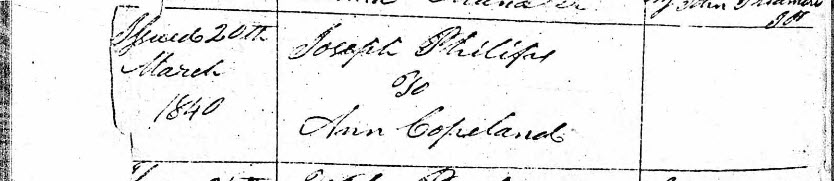 Issued 20th
March
1840
Joseph Philips
To
Ann Copeland